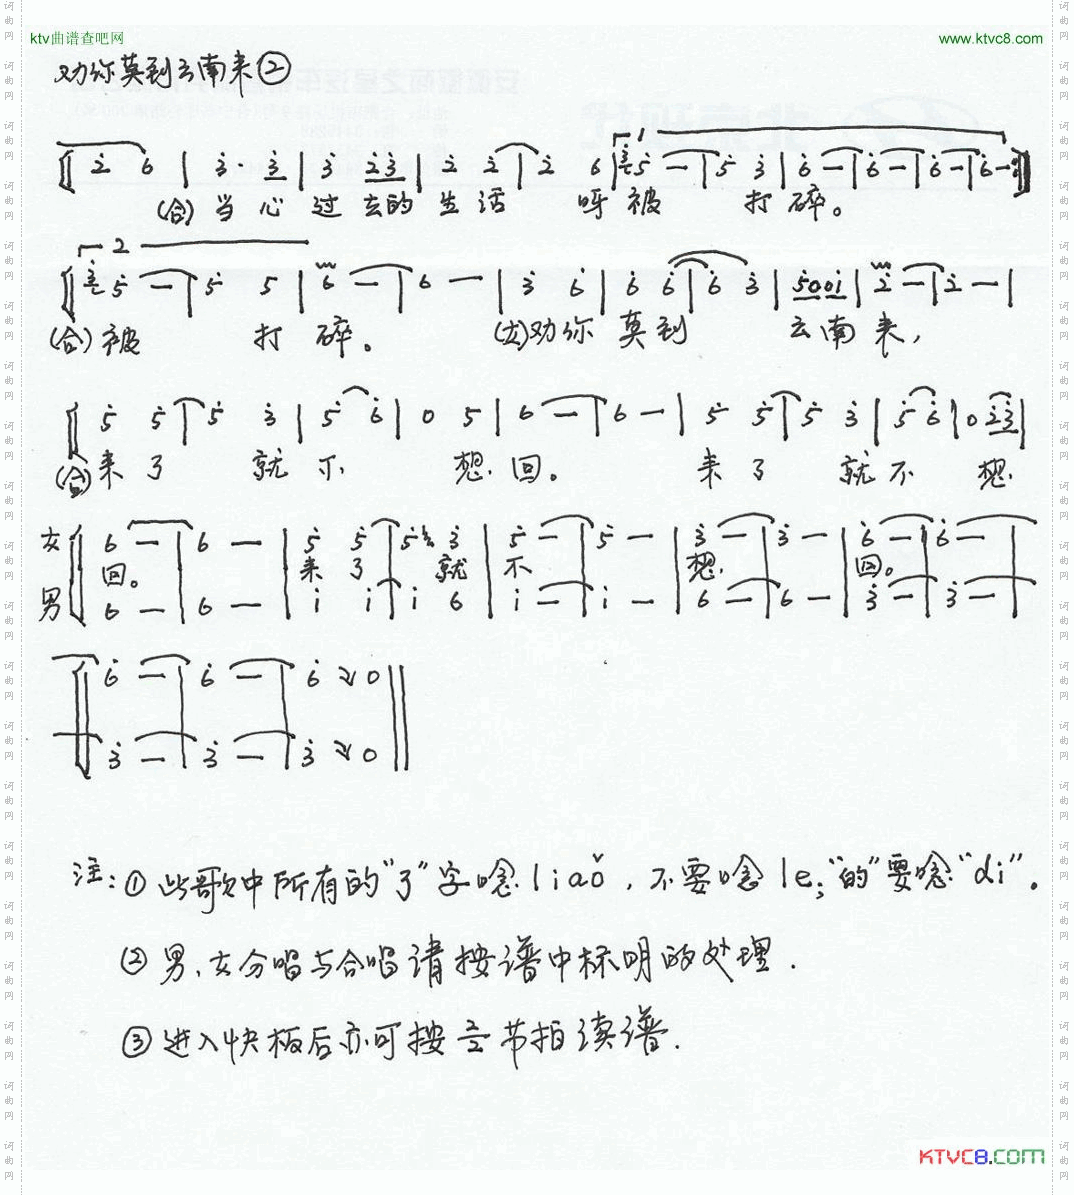 ktv曲谱查吧网
www.ktvc8.com
劝你莫到云南来②
2 6 | 3· 3 | 3 23 | 2 2 | 2 6 | 5 — | 5 3 | 6 — | 6 — | 6 — | 6 —
(合) 当 心 过 去的 生 活 呀 被 打 碎。
2
5 — | 5 5 | 6 — | 6 — | 3 6 | 6 6 | 6 3 | 5001 | 2 — | 2 — |
(合) 被 打 碎。 (女)劝 你 莫 到 云 南 来,
5 5 | 5 3 | 5 6 | 0 5 | 6 — | 6 — | 5 5 | 5 3 | 5 6 | 0 23 |
(合) 来 了 就 不 想 回。 来 了 就 不 想
女 6 — | 6 — | 5 5 | 5 3 | 5 — | 5 — | 3 — | 3 — | 6 — | 6 — |
回。 来 了 就 不 想 回。
男 6 — | 6 — | 1 1 | 1 6 | 1 — | 1 — | 6 — | 6 — | 3 — | 3 — |
6 — | 6 — | 6 0
3 — | 3 — | 3 0
注:① 此歌中所有的“了”字唸 liaǒ,不要唸 le;“的”要唸“di”。
② 男、女分唱与合唱请按谱中标明的处理.
③ 进入快板后亦可按 节拍读谱.
KTVC8.COM
词曲网